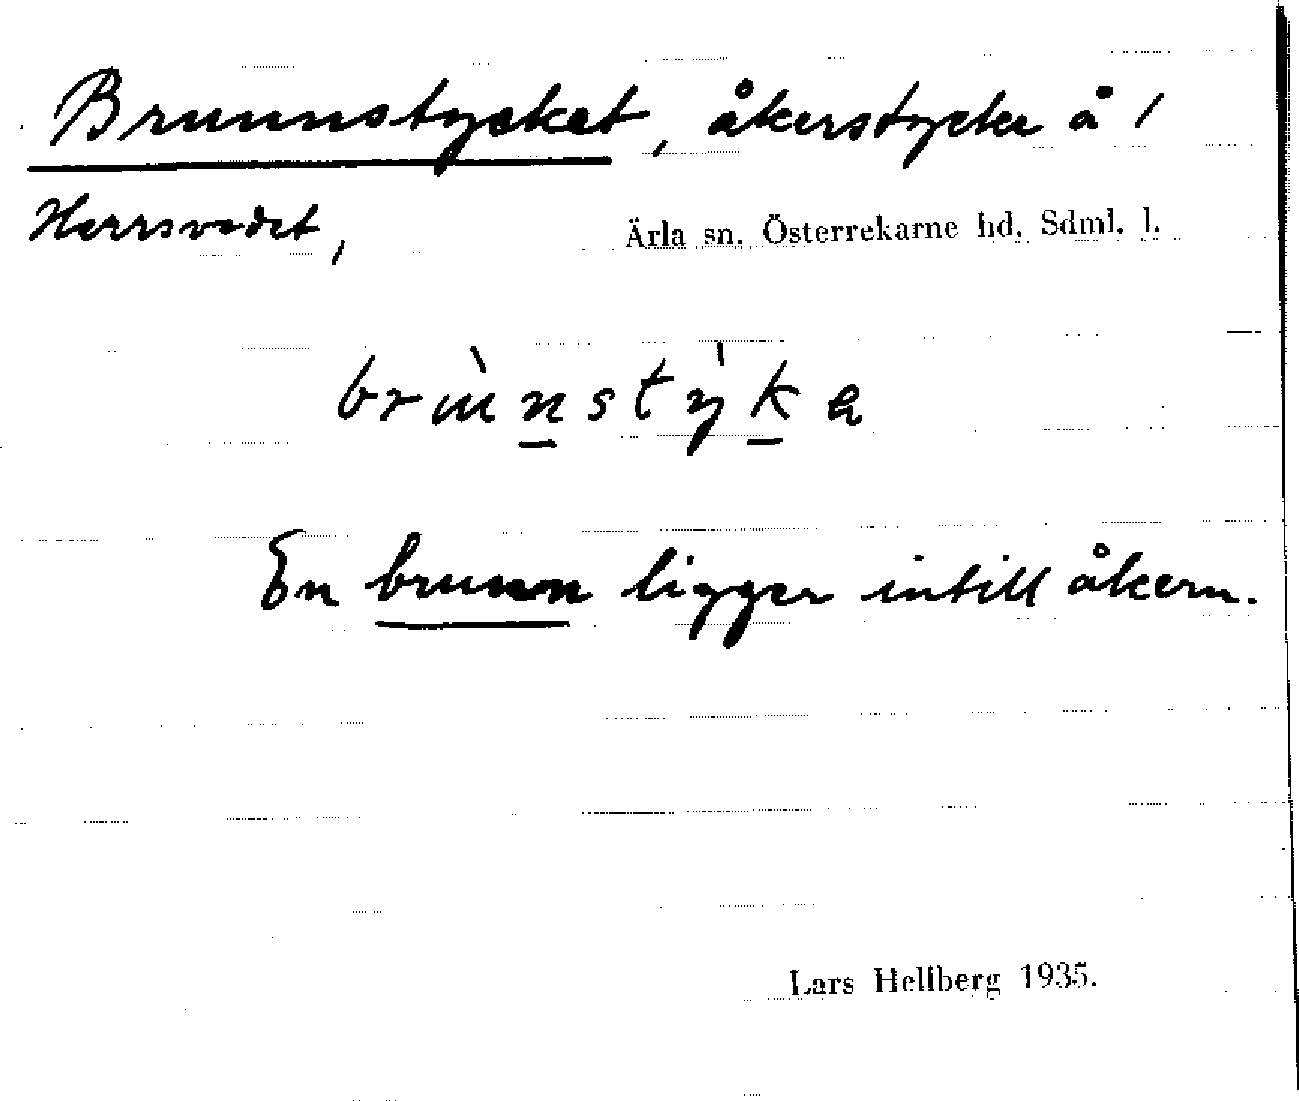 Brunnstycket, åkerstycke å /
Herrsvedet,
Ärla sn. Österrekarne hd. Sdml. l.
En brunn ligger intill åkern.
Lars Hellberg 1935.